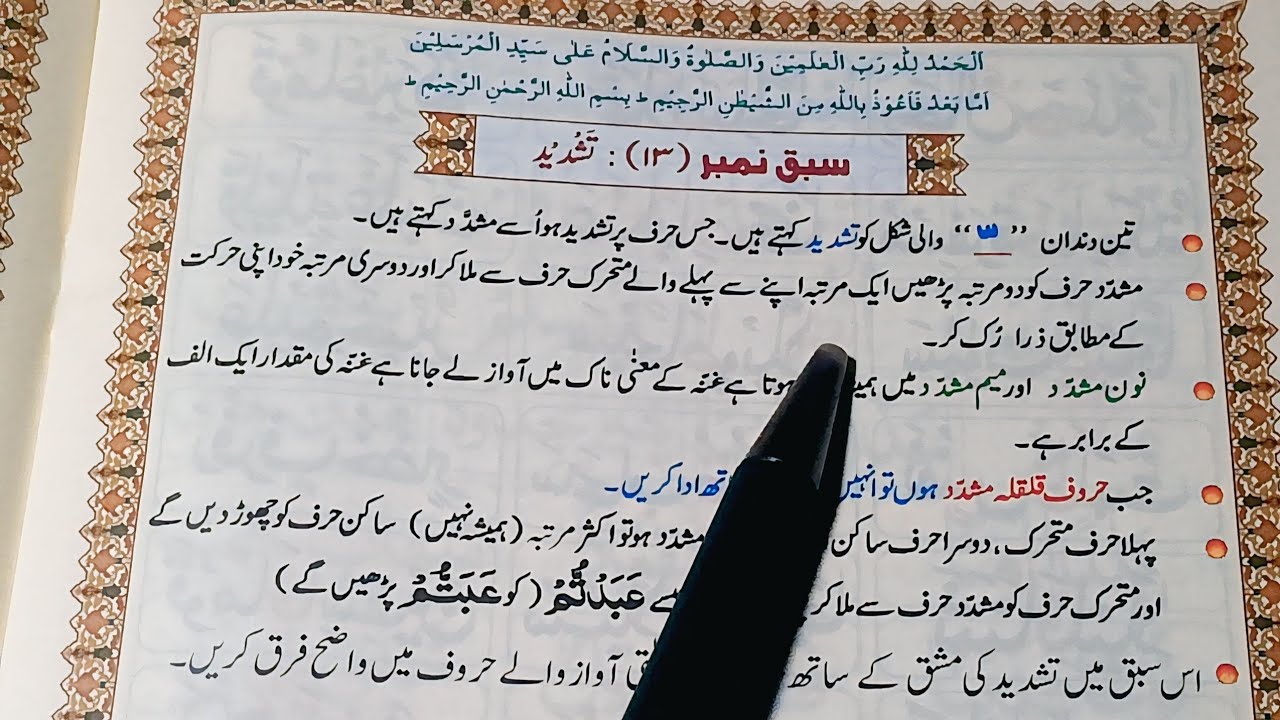 اَلْحَمْدُ لِلّٰهِ رَبِّ الْعٰلَمِیْنَ وَالصَّلٰوةُ وَالسَّلَامُ عَلٰی سَیِّدِ الْمُرْسَلِیْنَ
اَمَّا بَعْدُ فَاَعُوْذُ بِاللّٰهِ مِنَ الشَّیْطٰنِ الرَّجِیْمِ ط بِسْمِ اللّٰهِ الرَّحْمٰنِ الرَّحِیْمِ ط
سبق نمبر (۱۳) : تَشْدِیْد
تین دندان ” ّ “ والی شکل کو تشدید کہتے ہیں۔ جس حرف پر تشدید ہو اُسے مشدَّد کہتے ہیں۔
مشدّد حرف کو دو مرتبہ پڑھیں ایک مرتبہ اپنے سے پہلے والے متحرک حرف سے ملا کر اور دوسری مرتبہ خود اپنی حرکت
کے مطابق ذرا رُک کر۔
نون مشدّد اور میم مشدّد میں ہوتا ہے غنّہ کے معنٰی ناک میں آواز لے جانا ہے غنّہ کی مقدار ایک الف
کے برابر ہے۔
جب حروف قلقلہ مشدّد ہوں تو انہیں ادا کریں۔
پہلا حرف متحرک، دوسرا حرف ساکن مشدّد ہو تو اکثر مرتبہ (ہمیشہ نہیں) ساکن حرف کو چھوڑ دیں گے
اور متحرک حرف کو مشدّد حرف سے ملا کر عَبَدْتُّمْ (کو عَبَتُّمْ پڑھیں گے)
اس سبق میں تشدید کی مشق کے ساتھ آواز والے حروف میں واضح فرق کریں۔